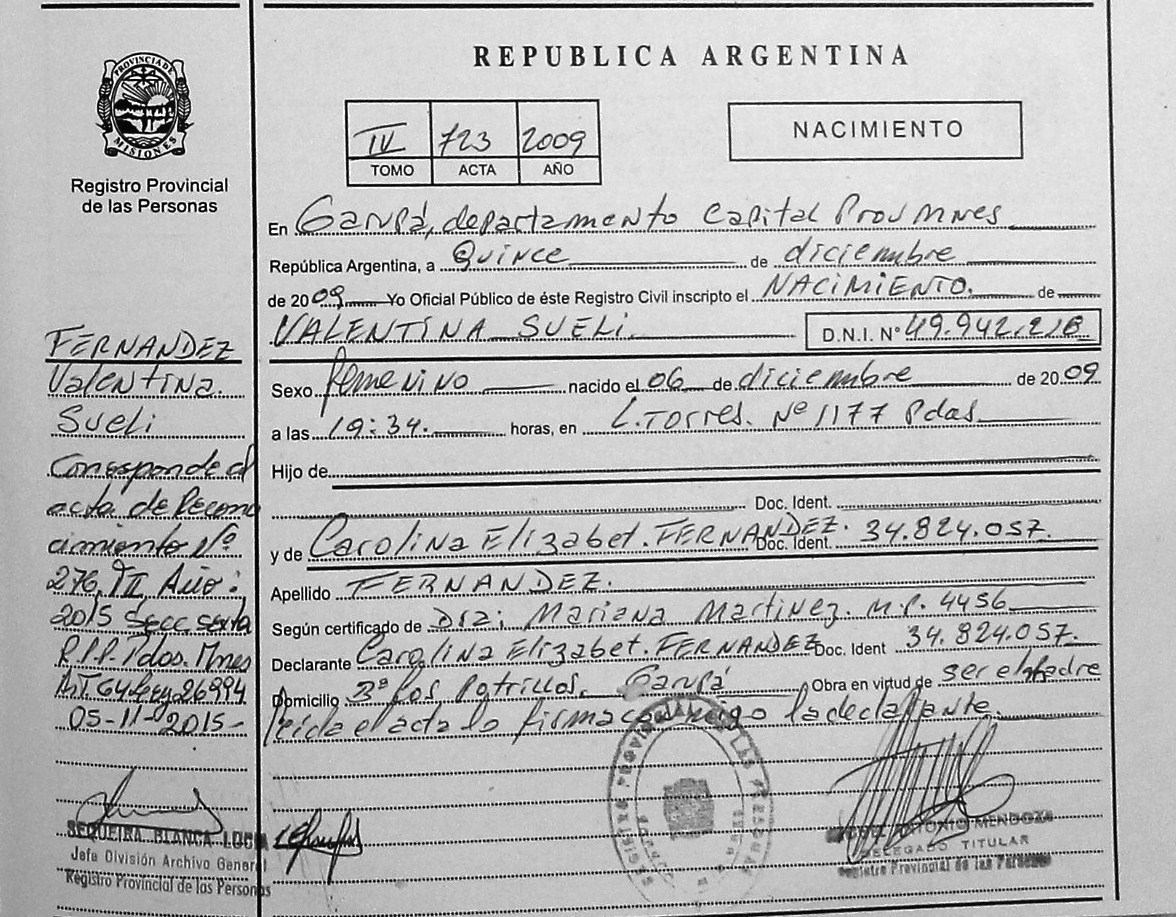 REPUBLICA ARGENTINA
PROVINCIA DE MISIONES
Registro Provincial
de las Personas
IV 723 2009
TOMO ACTA AÑO
NACIMIENTO
En Garupá, departamento Capital Prov Mnes
República Argentina, a Quince de diciembre
de 2009 Yo Oficial Público de éste Registro Civil inscripto el NACIMIENTO. de
VALENTINA SUELI. D.N.I. N° 49.942.
Sexo femenino nacido el 06 de diciembre de 2009
a las 19:34. horas, en L. Torres. Nº 1177 Pdas.
Hijo de
Doc. Ident.
y de Carolina Elizabet. FERNANDEZ. Doc. Ident. 34.824.057.
Apellido FERNANDEZ.
Según certificado de Dra: Mariana Martinez. M.P. 4456
Declarante Carolina Elizabet. FERNANDEZ Doc. Ident 34.824.057.
Domicilio Bº Los Potrillos. Garupá Obra en virtud de ser el Madre
leida el acta lo firma conmigo la declarante.
FERNANDEZ
Valentina.
Sueli
Corresponde al
acta de Recono
cimiento Nº
276, Año:
2015 Secc. sexta
Pdos. Mnes
Art. 64 Ley 26994
05-11-2015-
SEQUEIRA BLANCA LUCIA
Jefe División Archivo General
Registro Provincial de las Personas
ANTONIO MENDOZA
DELEGADO TITULAR
Registro Provincial de las Personas